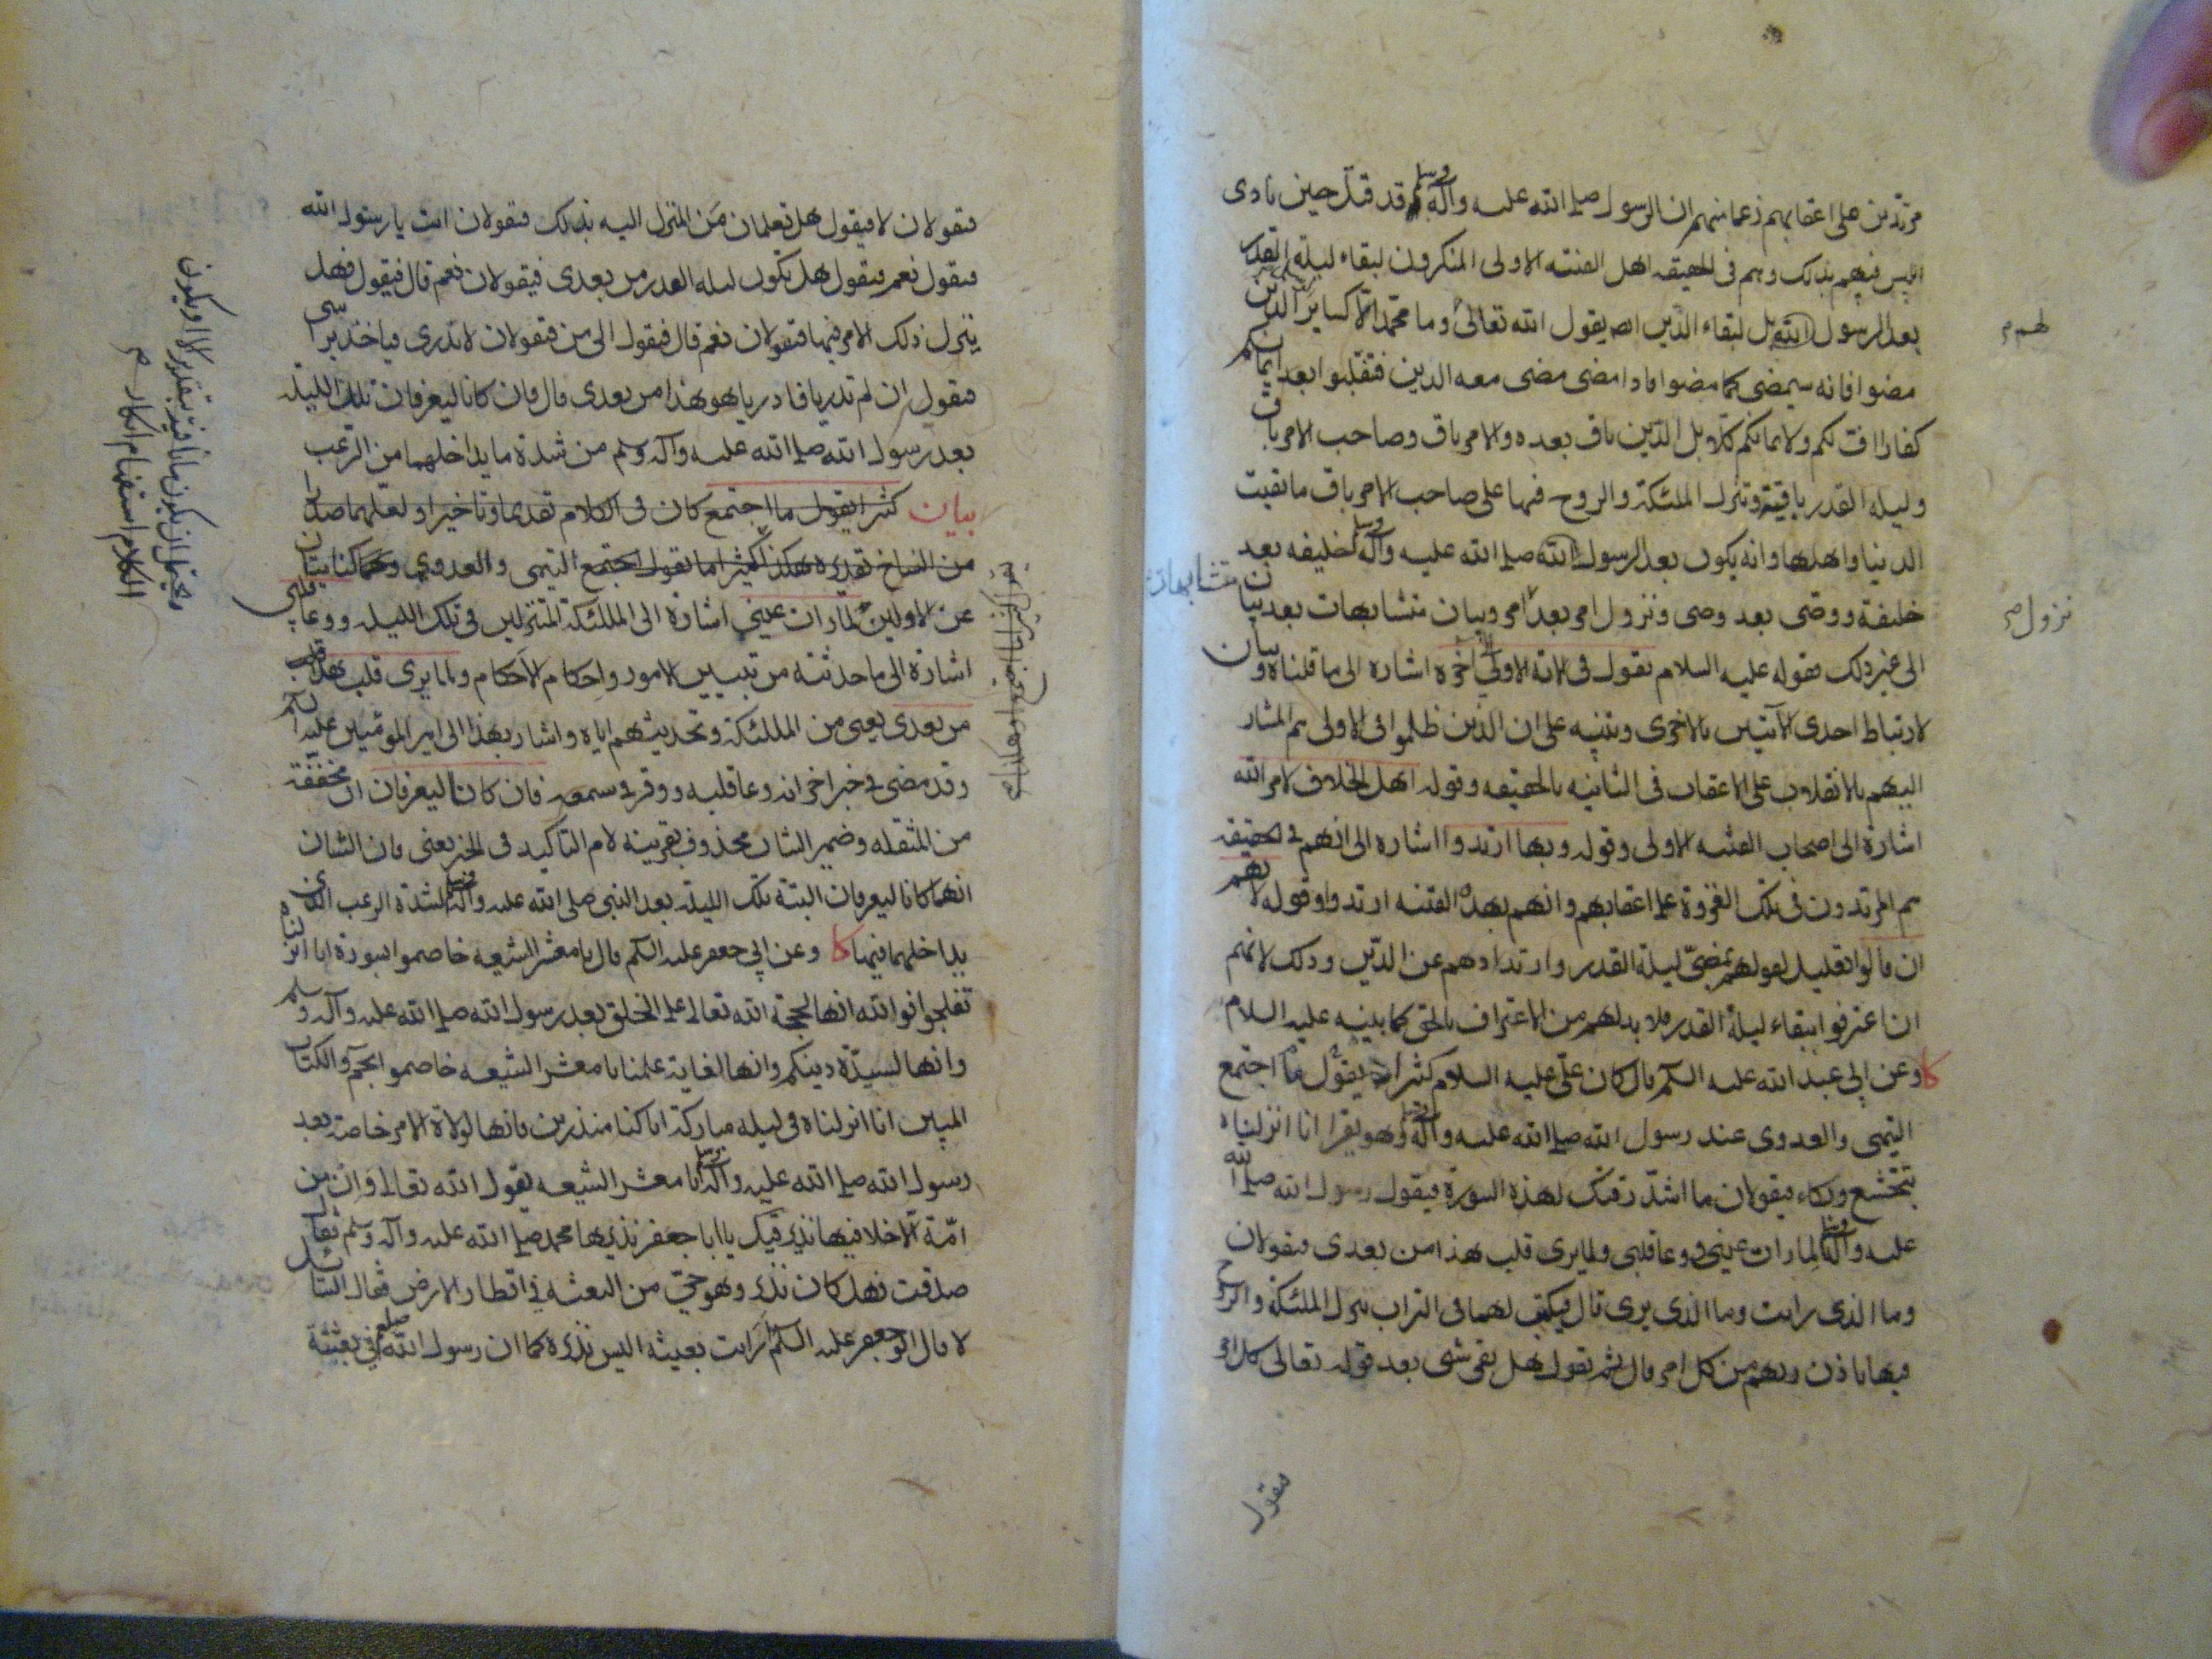 مرتدين على اعقابهم زعما منهم ان الرسول صلى الله عليه وآله وسلم قد قتل حين نادى
ابليس فيهم بذلك وهم في الحقيقه اهل الفتنه الاولى المنكرون لبقاء ليلة القدر
بعد الرسول بل لبقاء الدين اصه يقول الله تعالى وما محمد الا كساير الذين
مضوا فانه سيمضى كما مضوا فاذا مضى مضى معه الدين فتقلبوا بعد ايمانكم
كفارا اف لكم ولايمانكم كلا بل الدين باق بعده والامر باق وصاحب الامر باق
وليله القدر باقية وتنزل الملئكة والروح فيها على صاحب الامر باق ما بقيت
الدنيا واهلها وانه يكون بعد الرسول صلى الله عليه وآله وسلم خليفه بعد
خليفة ووصى بعد وصى ونزول امر بعد امر وبيان متشابهات بعد بيان
الى غير ذلك فقوله عليه السلام نقول في الاية الاولى الى اخره اشاره الى ما قلناه وبيان
لارتباط احدى الآيتين بالاخرى وتنبيه على ان الذين ظلموا في الاولى هم المشار
اليهم بالانقلاب على الاعقاب في الثانيه بالحقيقه وقوله اهل الخلاف لامر الله
اشارة الى اصحاب الفتنه الاولى وقوله وبها ارتدوا اشاره الى انهم في الحقيقه
هم المرتدون في تلك الغزوة على اعقابهم وانهم بهذه الفتنه ارتدوا وقوله لانهم
ان قالوا تعليل لقولهم بمضى ليلة القدر وارتدادهم عن الدين وذلك لانهم
ان اعترفوا ببقاء ليلة القدر فلا بد لهم من الاعتراف بالحق كما بينه عليه السلام
كا وعن ابي عبد الله عليه السلم قال كان على عليه السلام كثيرا يقول ما اجتمع
التيمى والعدوى عند رسول الله صلى الله عليه وآله وسلم وهو يقرا انا انزلناه
بتخشع وبكاء فيقولان ما اشد رقتك لهذه السورة فيقول رسول الله صلى الله
عليه وآله وسلم لما رات عينى ووعا قلبى ولما يرى قلب هذا من بعدى فيقولان
وما الذى رايت وما الذى يرى قال فيكتب لهما في التراب تنزل الملئكة والروح
فيها باذن ربهم من كل امر قال ثم يقول هل بقى شى بعد قوله تعالى كل امر
فيقول
لهم م
نزول م
متشابهات
فيقولان لا فيقول هل تعلمان من المنزل اليه بذلك فيقولان انت يا رسول الله
فيقول نعم فيقول هل تكون ليله القدر من بعدى فيقولان نعم قال فيقول فهل
ينزل ذلك الامر فيها فيقولان نعم قال فيقول الى من فيقولان لا ندرى فياخذ براسى
فيقول ان لم تدريا فادريا هو هذا من بعدى قال فان كانا ليعرفان تلك الليلة
بعد رسول الله صلى الله عليه وآله وسلم من شدة ما يداخلهما من الرعب
بيان كثيرا يقول ما اجتمع كان في الكلام تقديما وتاخيرا ولعلهما صدرا
من النساخ تقديره هكذا كثيرا ما يقول اجتمع التيمى والعدوى وهما كنايتان
عن الاولين لما رات عينى اشارة الى الملئكة المتنزلين في تلك الليله ووعا قلبى
اشارة الى ما حدثته من تبيين الامور واحكام الاحكام ولما يرى قلب هذا
من بعدى يعنى من الملئكة وتحديثهم اياه واشار بهذا الى امير المومنين عليه السلم
وقد مضى في خبر اخر انه وعا قلبه ووقر في سمعه فان كانا ليعرفان ان مخففة
من المثقله وضمير الشان محذوف بقرينه لام التاكيد في الخبر يعنى فان الشان
انهما كانا ليعرفان البتة تلك الليلة بعد النبى صلى الله عليه وآله وسلم لشدة الرعب الذى
يداخلهما فيها كا وعن ابي جعفر عليه السلم قال يا معشر الشيعه خاصموا بسورة انا انزلناه
تفلجوا فوالله انها لحجة الله تعالى على الخلق بعد رسول الله صلى الله عليه وآله وسلم
وانها لسيدة دينكم وانها لغاية علمنا يا معشر الشيعه خاصموا بحم والكتاب
المبين انا انزلناه في ليله مباركة انا كنا منذرين فانها لولاة الامر خاصة بعد
رسول الله صلى الله عليه وآله وسلم يا معشر الشيعه يقول الله تعالى وان من
امة الا خلا فيها نذير قيل يا ابا جعفر نذيرها محمد صلى الله عليه وآله وسلم فقال
صدقت فهل كان نذير وهو حى من البعثه في اقطار الارض فقال السائل
لا قال ابو جعفر عليه السلم ارايت بعيثه اليس نذيره كما ان رسول الله صلعم في بعثته
ويحتمل ان يكون ما نافية بتقدير الا او يكون
الكلام استفهام انكار م